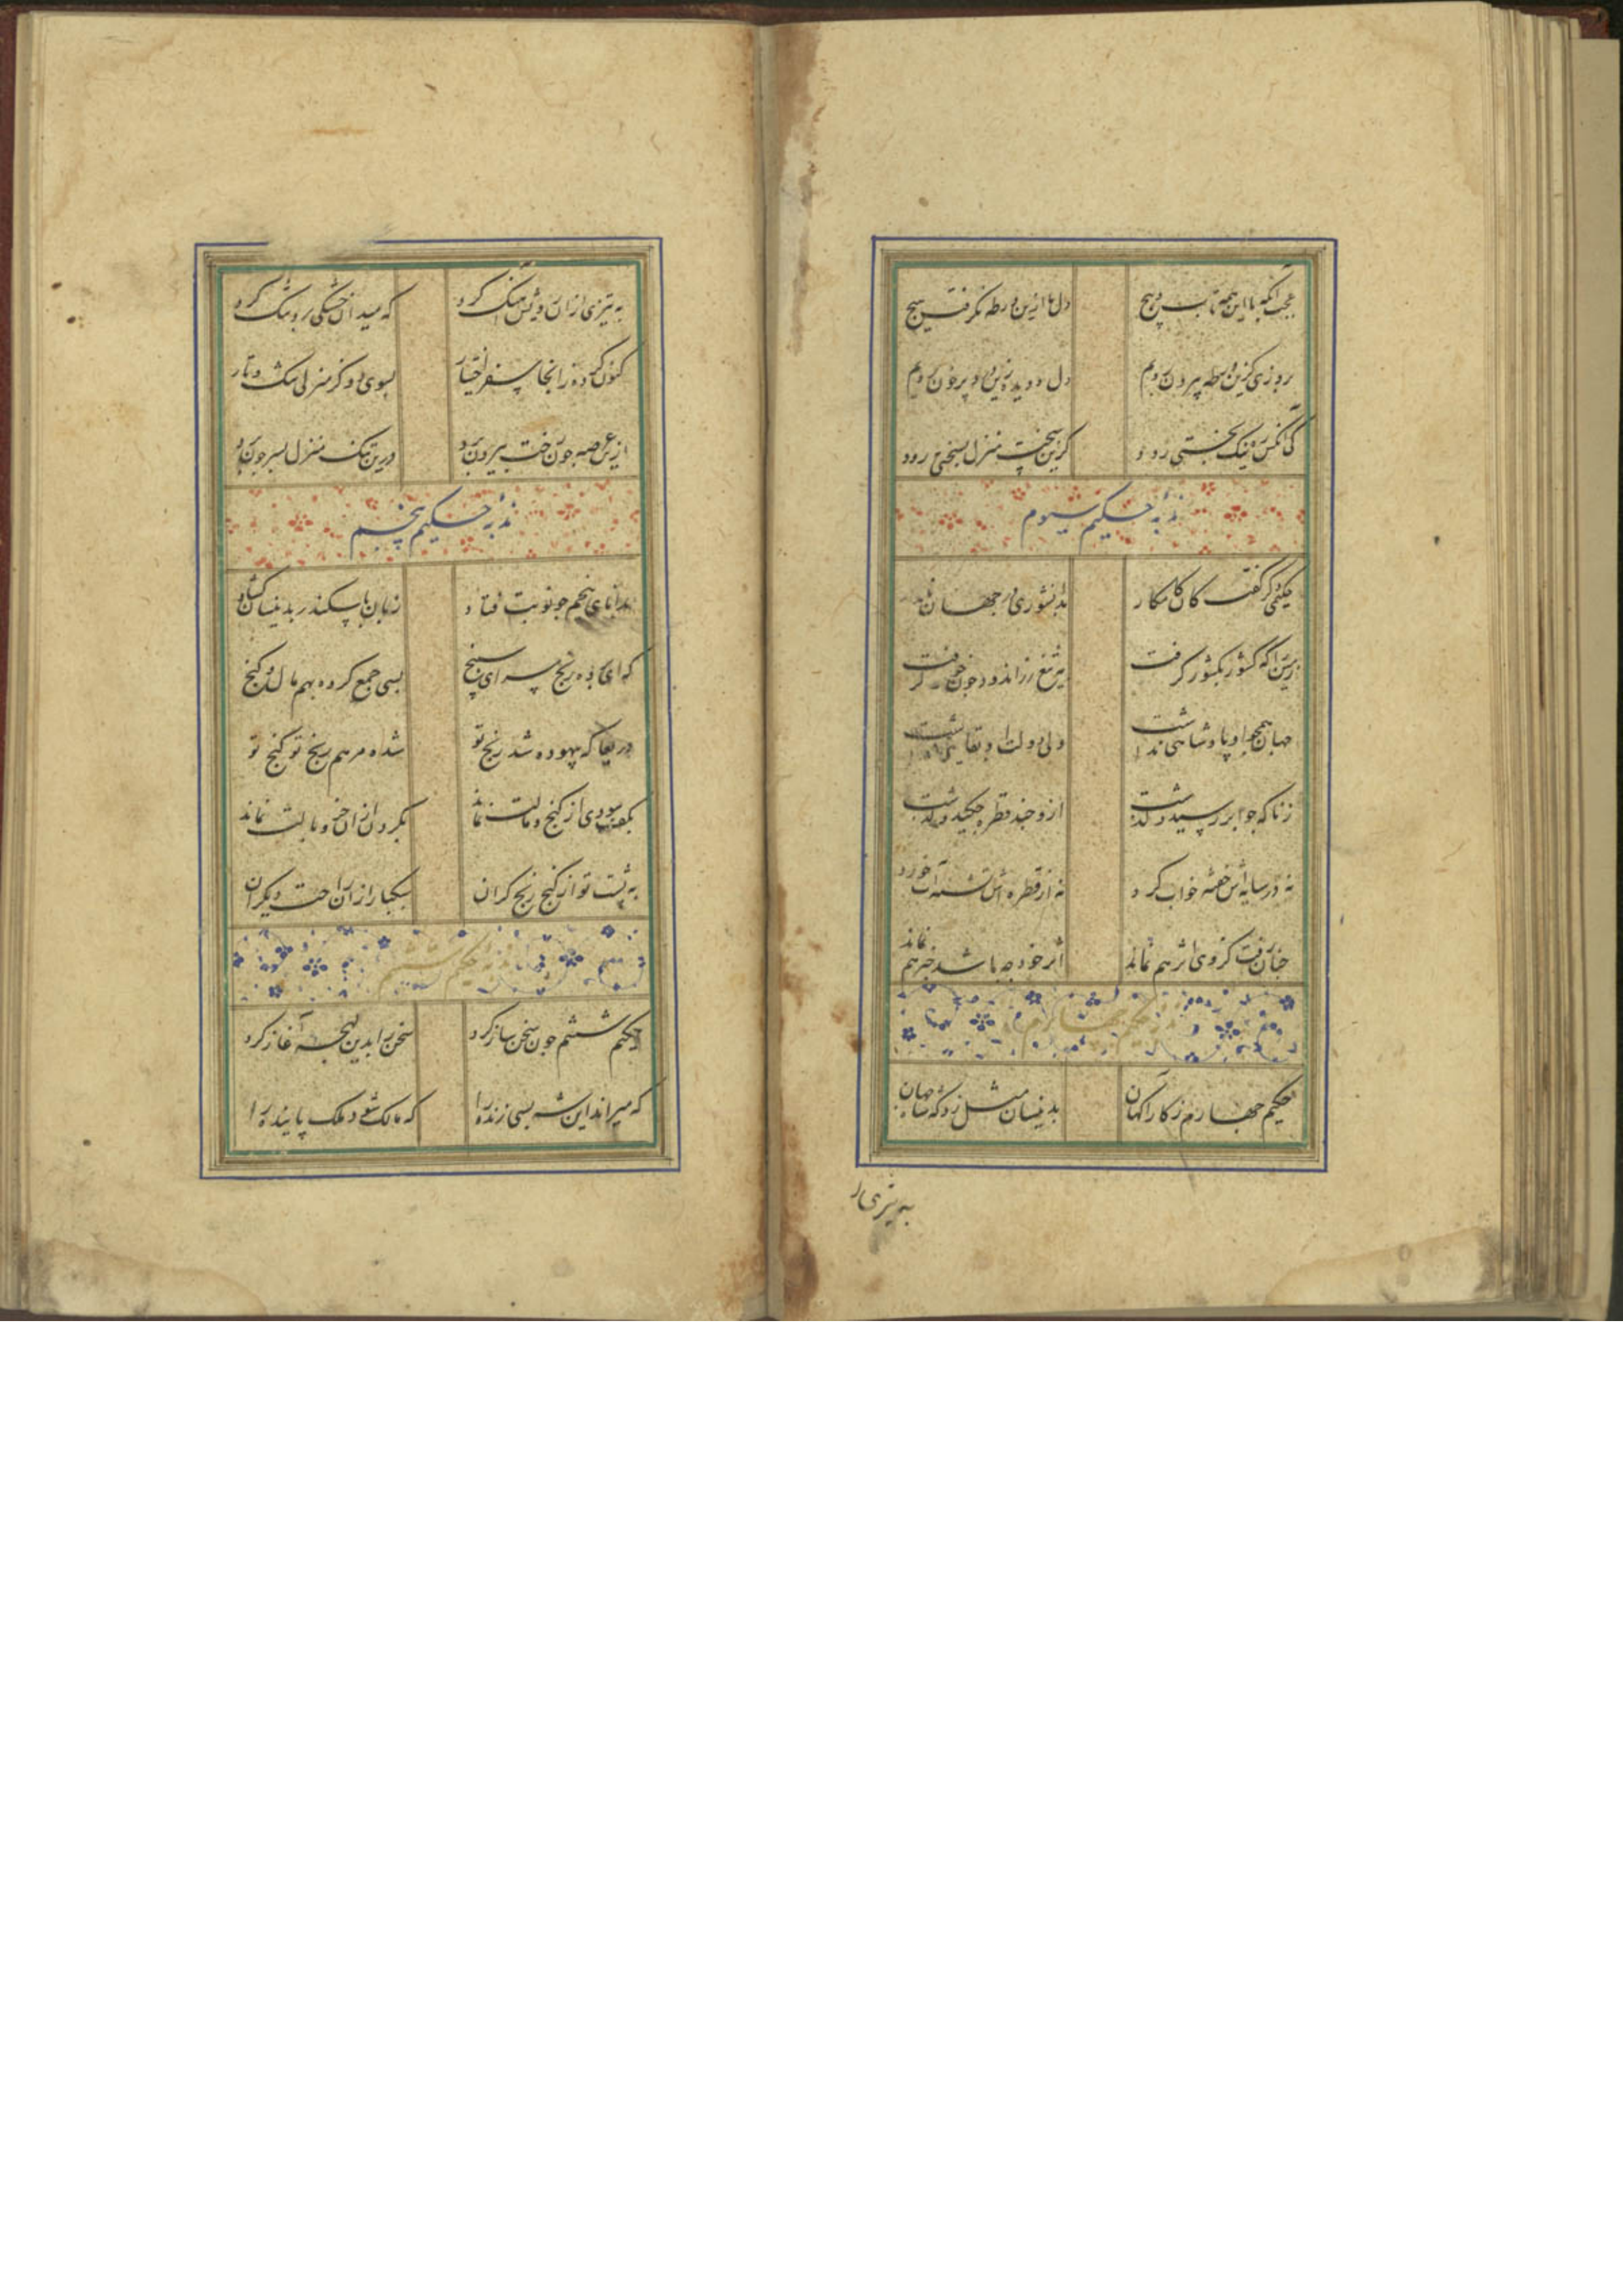 عجب آنکه با این همه تاب و پیچ دل ما ازین ورطه نگرفت هیچ
بروزی کزین وحطه بیرون رویم دل و دیده زین در پر خون رویم
کی آنکس ره نیک بختی رود کزین سخت منزل بسختی رود
ندبه حکیم سیوم
حکیمی دگر گفت کان کامکار بدانشوری در جهان
زمین را که کشور بکشور گرفت بتیغ زراندود خون گرفت
جهان همچو او پادشاهی نداشت ولی دولت او بقایی نداشت
زناکه چو ابر رسید و گذشت ازو چند قطره چکید و گذشت
نه در سایه‌اش خفته خواب کرد نه از قطره‌اش تشنه آب خورد
چنان رفت کزوی اثر هم نماند اثر خود چه باشد خبر هم نماند
ندبه حکیم چهارم
حکیم چهارم ز کار آگهان بدینسان مثل زد که شاه جهان
به تیزی از
به تیزی ازان پیش آهنگ کرد که میدان خشکی برو تنگ کرد
کنون کرده زانجا سفر اختیار بسوی دگر منزلی تنگ و تار
ازین عرصه چون رخت بیرون برد درین تنگ منزل بسر چون برد
ندبه حکیم پنجم
بدانای پنجم چو نوبت فتاد زبان با سکندر بدینسان گشاد
که ای برده رنج سرای سپنج بسی جمع کرده بهم مال و گنج
دریغا که بیهوده شد رنج تو نشد مرهم رنج تو گنج تو
بکف سودی از گنج و مالت نماند بگردن ازان جز وبالت نماند
به پشت تو از گنج رنج گران سبکبار ازان راحت دیگران
ندبه حکیم ششم
حکیم ششم چون سخن ساز کرد سخن را بدین لهجه آغاز کرد
که میراند این شه بسی زنده را که مالک شود ملک پاینده را